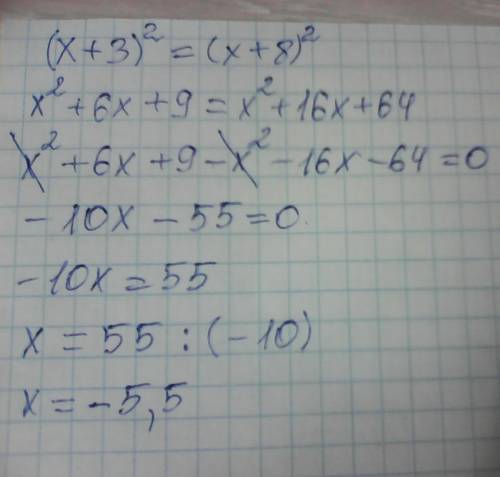 (x+3)² = (x+8)²
x² + 6x + 9 = x² + 16x + 64
x² + 6x + 9 - x² - 16x - 64 = 0
- 10x - 55 = 0.
-10x = 55
x = 55 : (-10)
x = -5,5